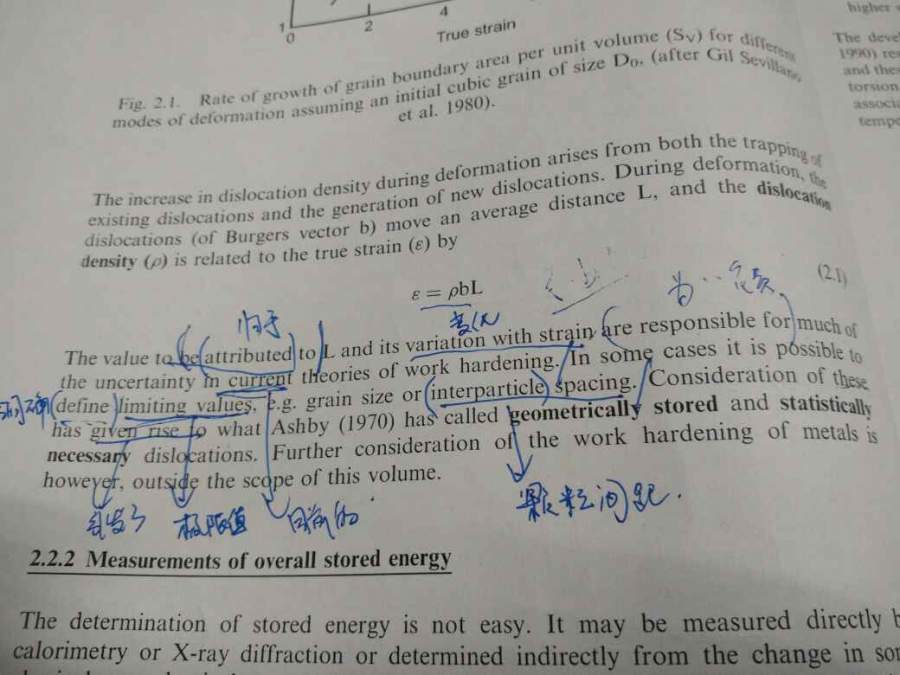 1
0
2
4
True strain
higher
Fig. 2.1. Rate of growth of grain boundary area per unit volume (Sv) for different
modes of deformation assuming an initial cubic grain of size D₀, (after Gil Sevillano
et al. 1980).
The increase in dislocation density during deformation arises from both the trapping of
existing dislocations and the generation of new dislocations. During deformation, the
dislocations (of Burgers vector b) move an average distance L, and the dislocation
density (ρ) is related to the true strain (ε) by
ε = ρbL
(2.1)
归于
变化
为
The value to be attributed to L and its variation with strain are responsible for much of
the uncertainty in current theories of work hardening. In some cases it is possible to
define limiting values, e.g. grain size or interparticle spacing. Consideration of these
has given rise to what Ashby (1970) has called geometrically stored and statistically
necessary dislocations. Further consideration of the work hardening of metals is
however, outside the scope of this volume.
引发了
极限值
目前的
颗粒间距.
2.2.2 Measurements of overall stored energy
The determination of stored energy is not easy. It may be measured directly b
calorimetry or X-ray diffraction or determined indirectly from the change in som
The deve
1990)
and thes
torsion
associa
tempe